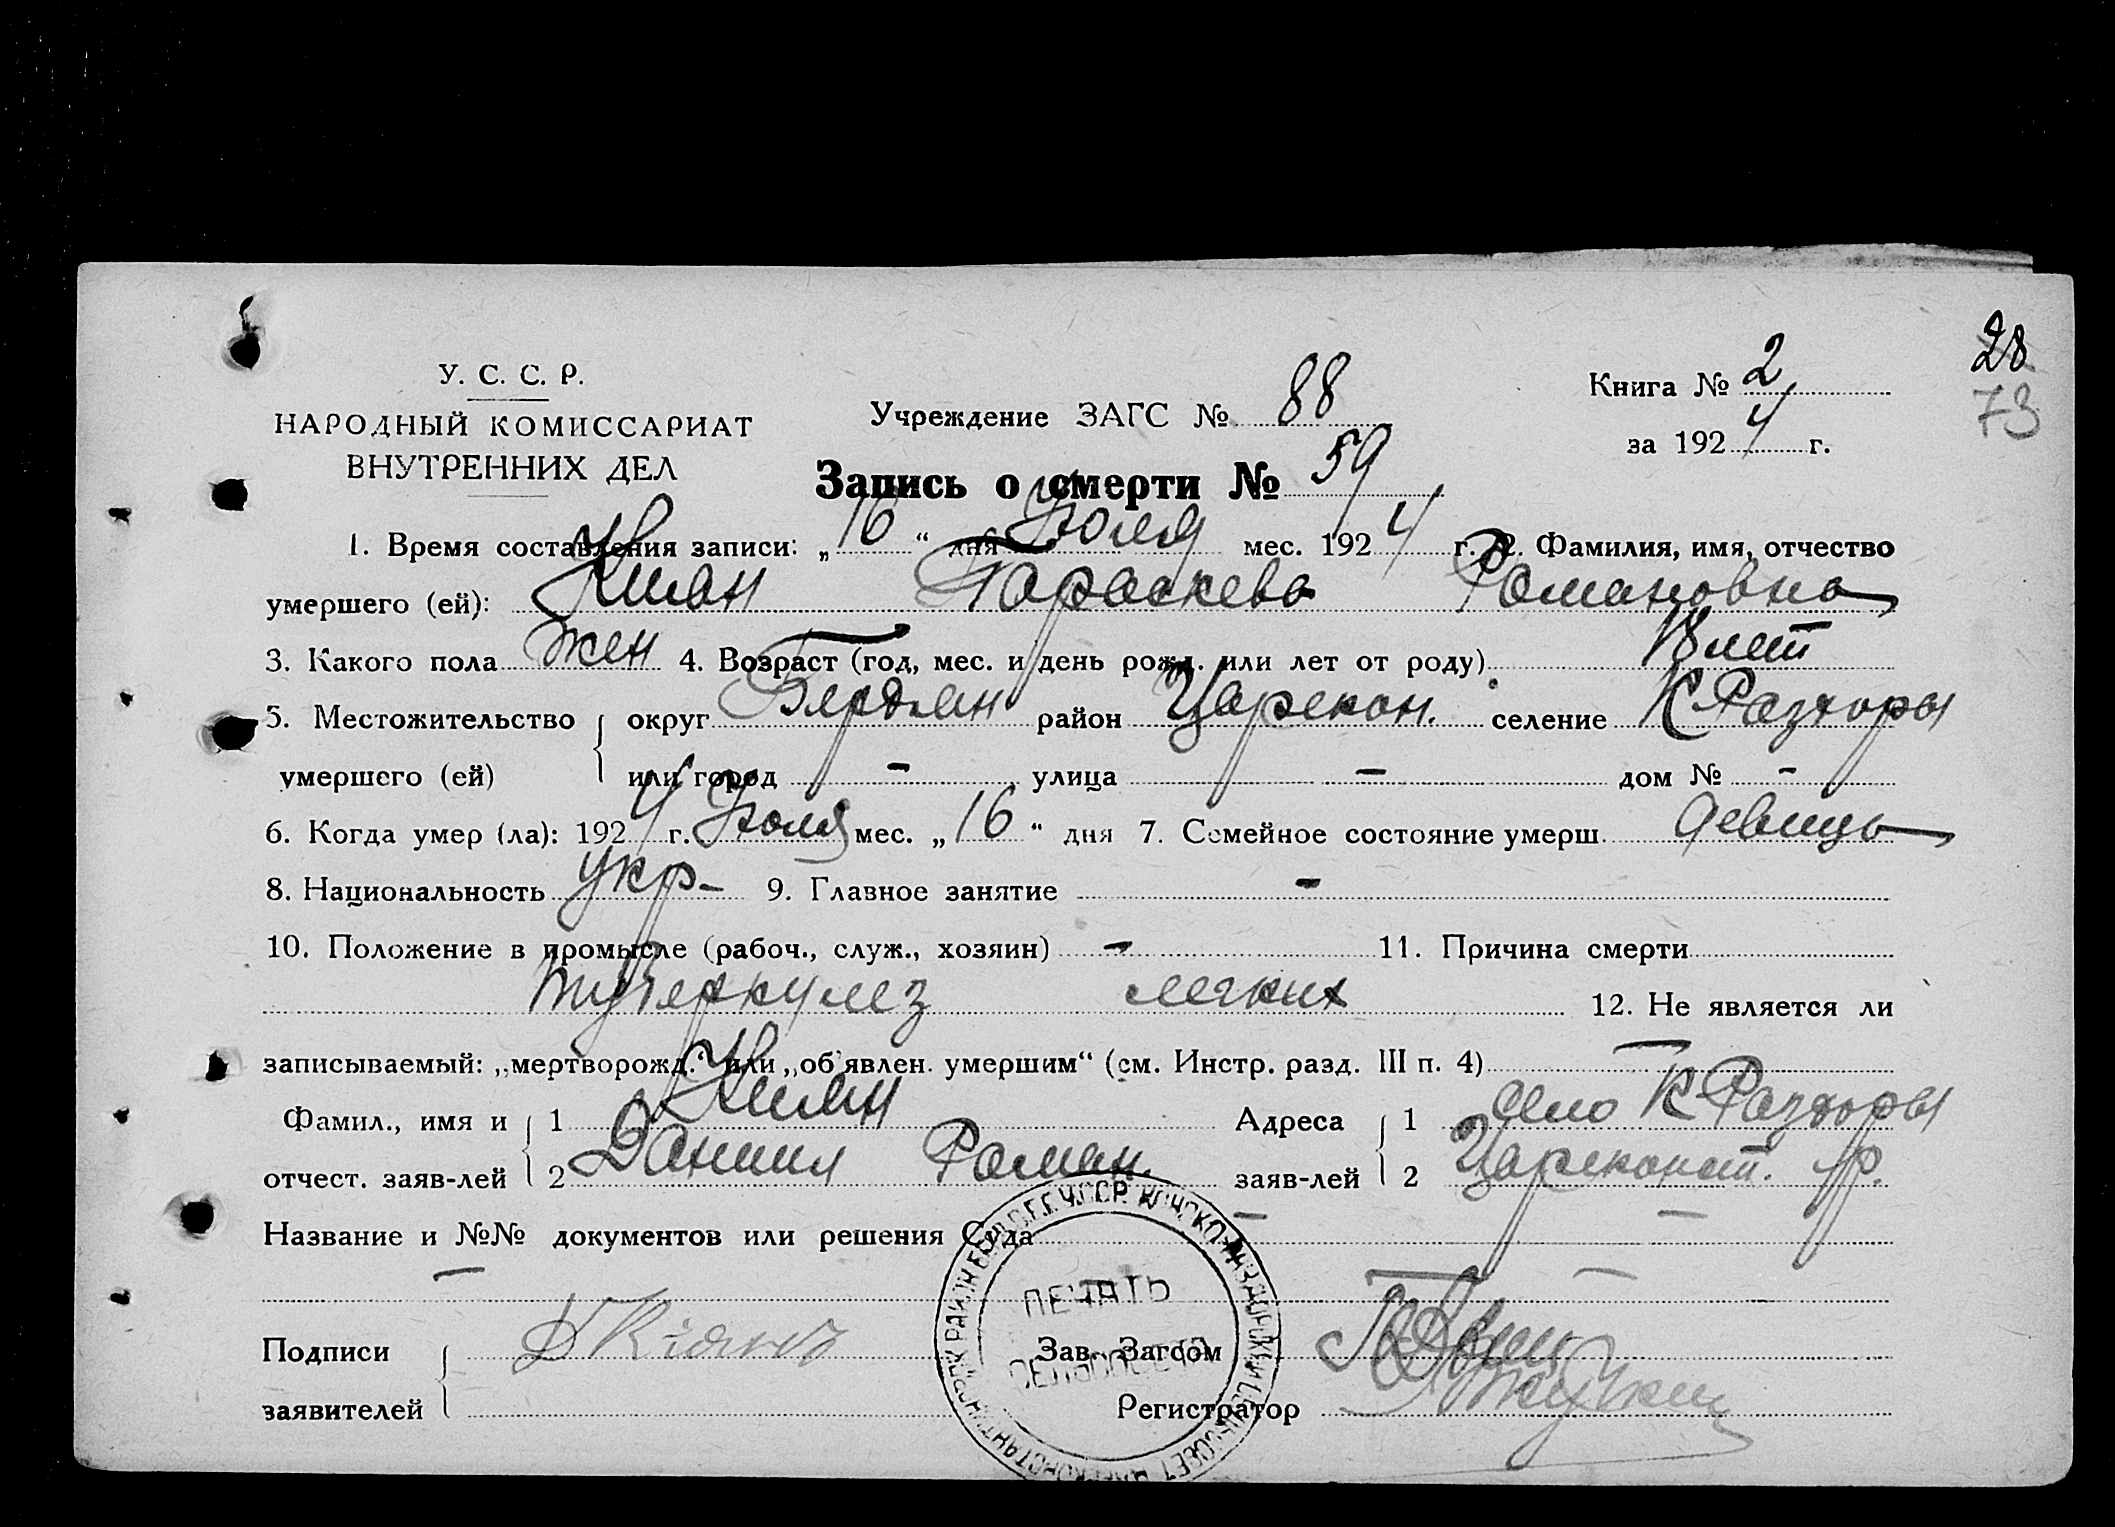 28
73
У. С. С. Р.
НАРОДНЫЙ КОМИССАРИАТ
ВНУТРЕННИХ ДЕЛ
Учреждение ЗАГС № 88
Книга № 2
за 1924 г.
Запись о смерти № 59
1. Время составления записи: „16“ дня Июля мес. 1924 г. 2. Фамилия, имя, отчество
умершего (ей): Киян Параскева Романовна
3. Какого пола жен 4. Возраст (год, мес. и день рожд. или лет от роду) 18 лет
5. Местожительство округ Бердян район Царекон. селение К Раздоры
умершего (ей) или город - улица - дом № -
6. Когда умер (ла): 1924 г. Июля мес. „16“ дня 7. Семейное состояние умерш. девица
8. Национальность укр- 9. Главное занятие -
10. Положение в промысле (рабоч., служ., хозяин) - 11. Причина смерти
туберкулез легких 12. Не является ли
записываемый: „мертворожд.“ или „об'явлен. умершим“ (см. Инстр. разд. III п. 4) -
Фамил., имя и 1 Киян Адреса 1 село К Раздоры
отчест. заяв-лей 2 Даниил Роман. заяв-лей 2 Цареконст. р.
Название и №№ документов или решения Суда - -
- - -
Подписи Д Кіянъ Зав. Загсом
заявителей Регистратор
ПЕЧАТЬ
СЕЛЬСОВЕТА